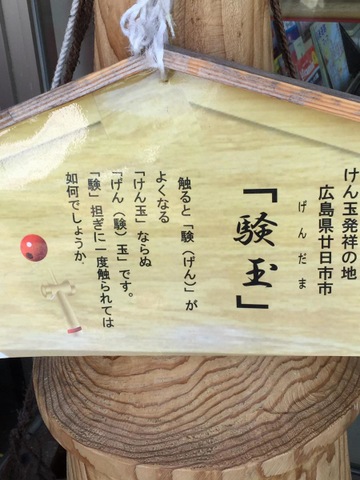 けん玉発祥の地
広島県廿日市市
げんだま
「験玉」
触ると「験（げん）」が
よくなる
「けん玉」ならぬ
「げん（験）玉」です。
「験」担ぎに一度触られては
如何でしょうか。